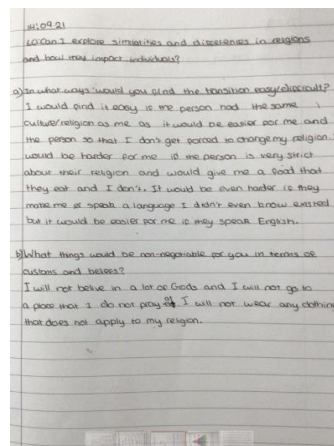 14:09.21
LO:Can I explore similarities and differences in religions
and how they impact individuals?
a) In what ways would you find the transition easy/difficult?
I would find it easy if the person had the same
culture/religion as me as it would be easier for me and
the person so that I don't get forced to change my religion.
would be harder for me if the person is very strict
about their religion and would give me a food that
they eat and I don't. It would be even harder if they
make me speak a language I didn't even know existed
but it would be easier for me if they speak English.
b) What things would be non-negotiable for you in terms of
customs and beliefs?
I will not belive in a lot of Gods and I will not go to
a place that I do not pray at I will not wear any clothing
that does not apply to my religion.